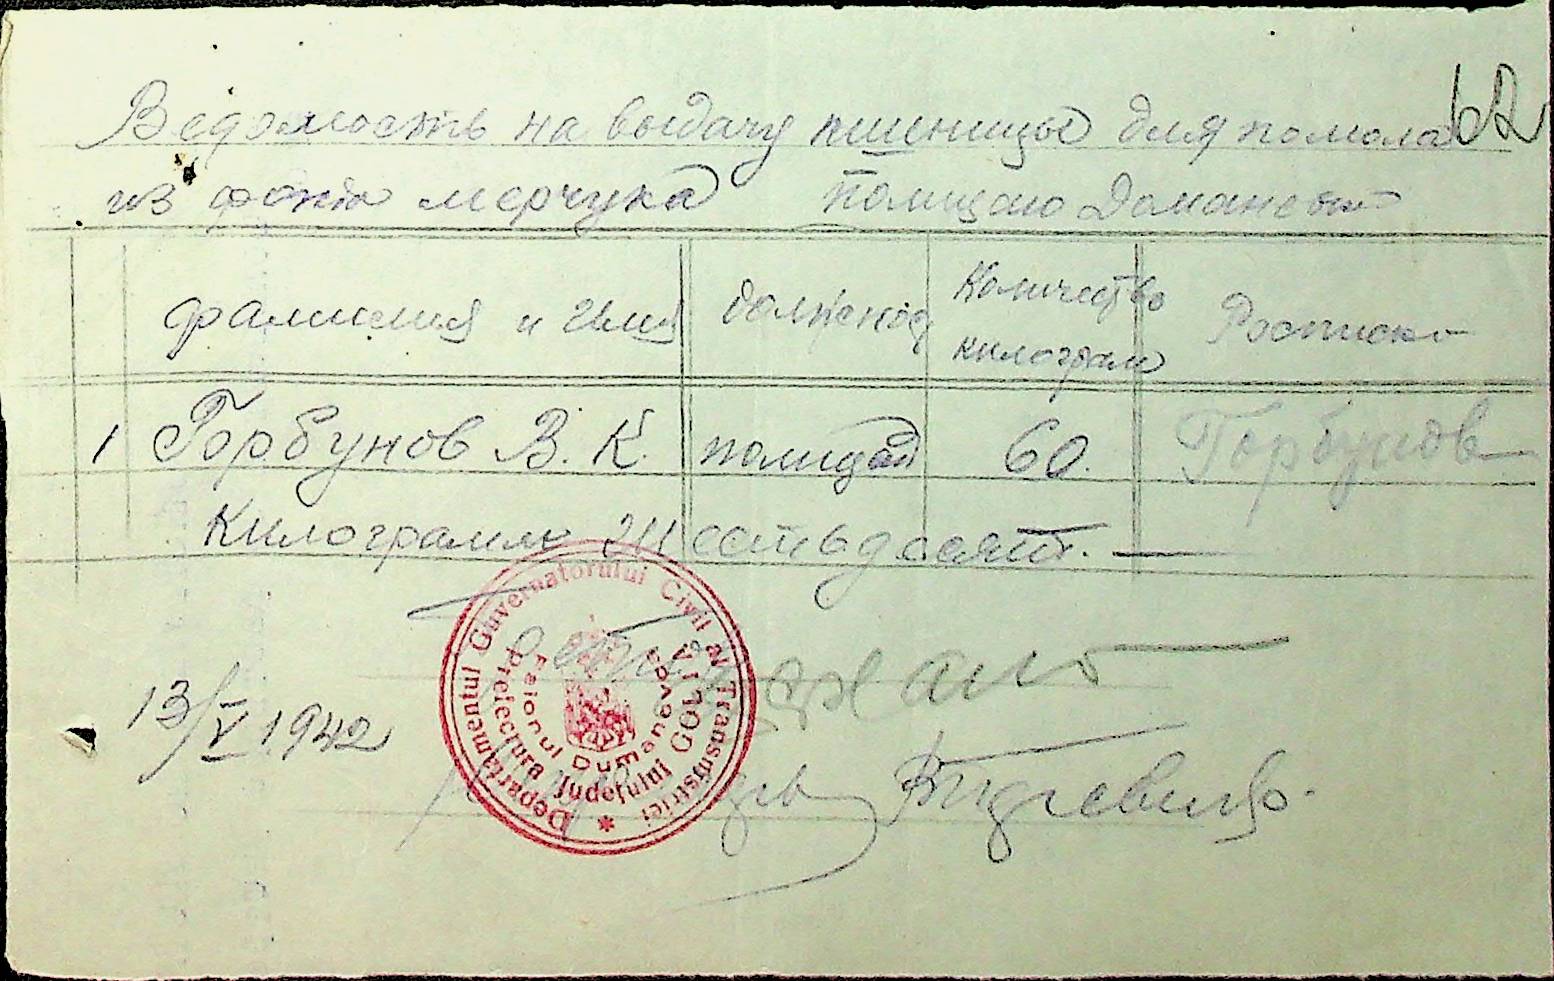 62
Ведомость на выдачу пшеницы для помола
из фонда мерчука полицаю Доманевки
фамилия и Имя должност Количество килограм Росписка
1 Горбунов В. К. полицай 60. Горбунов
Килограмм Шестьдесят.
13/V 1942
Departamentul Guvernatorului Civil al Transnistriei
Prefectura Județului GOLTA
Raionul Dumanevca